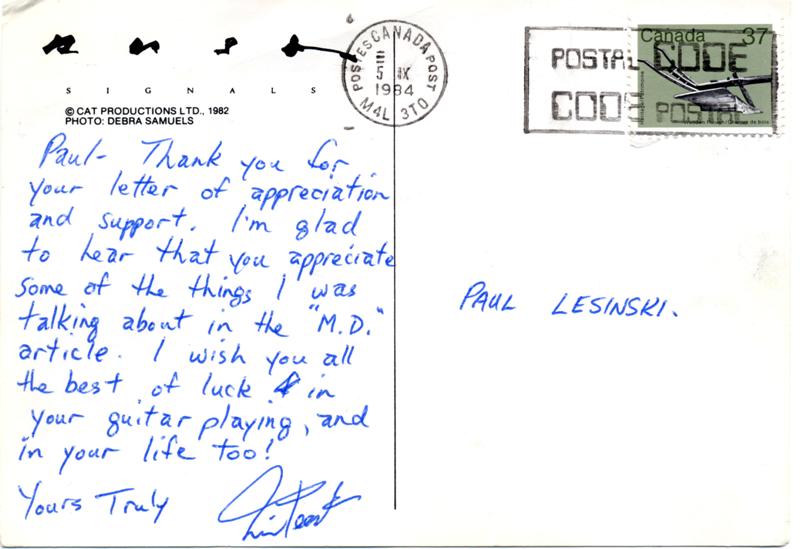 rush
SIGNALS
© CAT PRODUCTIONS LTD., 1982
PHOTO: DEBRA SAMUELS
POSTES CANADA POST
5 IX
1984
M4L 3T0
POSTAL CODE
CODE POSTAL
Canada 37
Paul - Thank you for
your letter of appreciation
and support. I'm glad
to hear that you appreciate
some of the things I was
talking about in the "M.D."
article. I wish you all
the best of luck in
your guitar playing, and
in your life too!
Yours Truly
Neil Peart
PAUL LESINSKI.